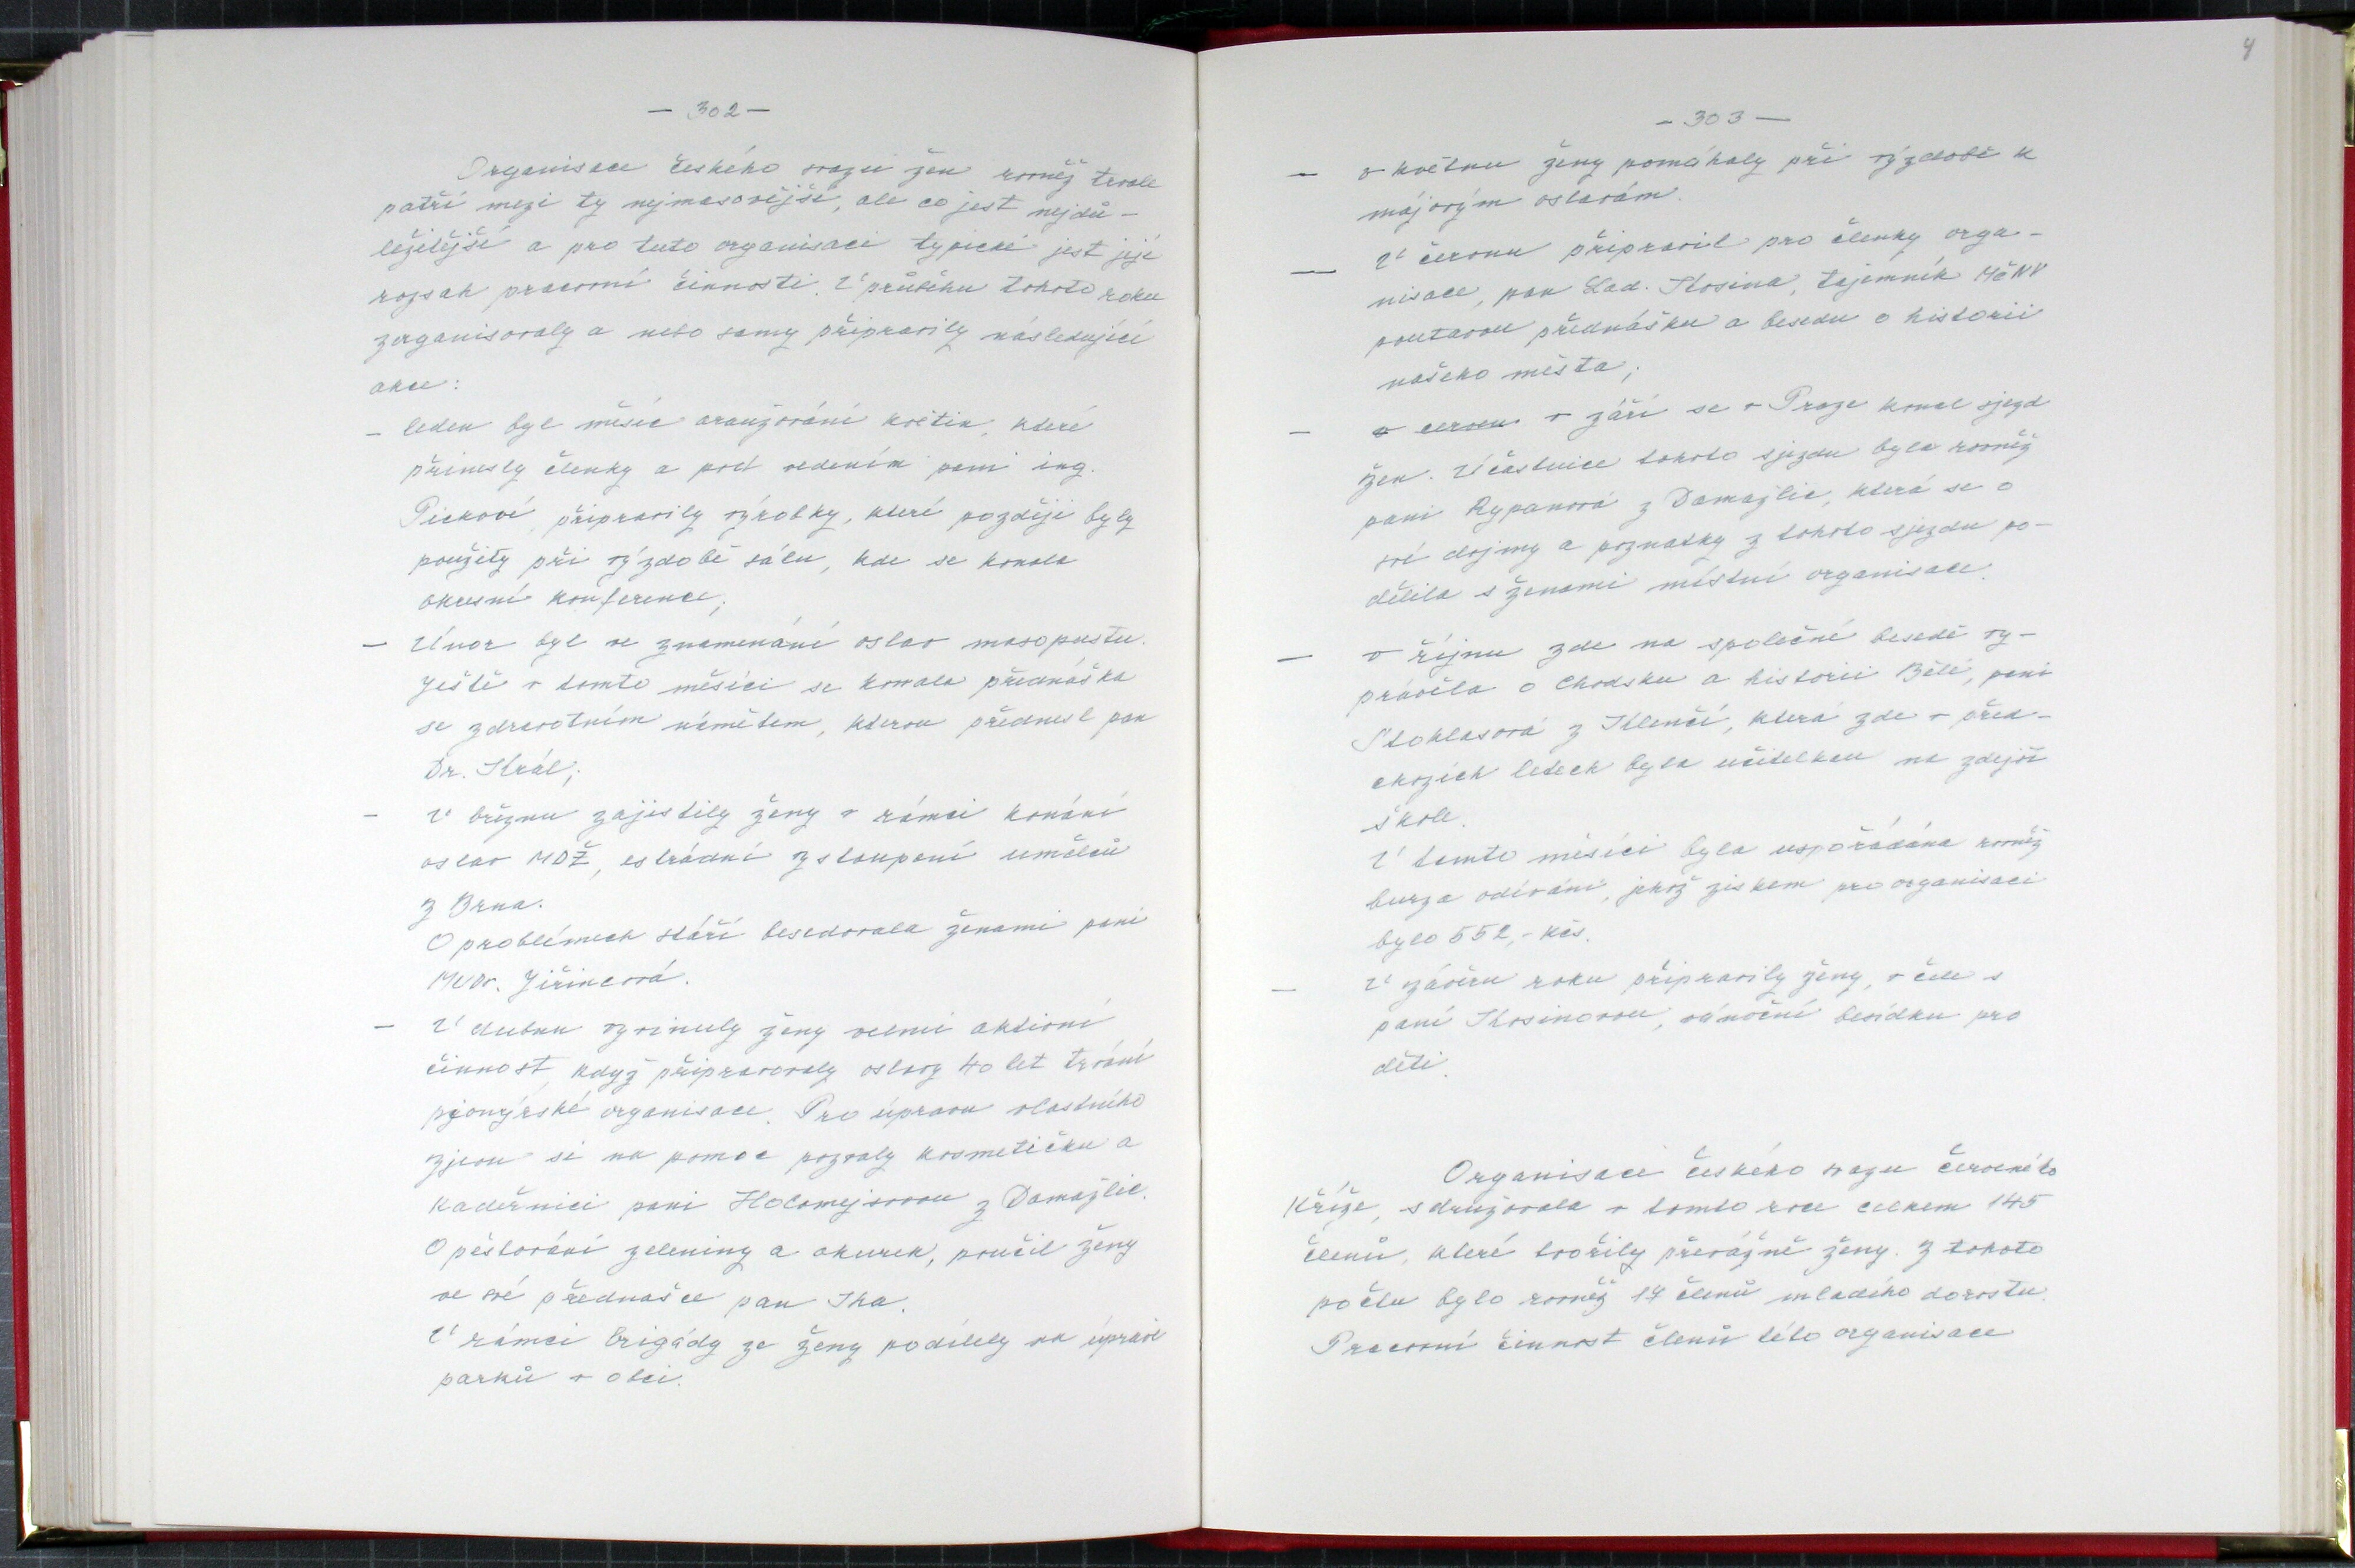 — 302 —
Organisace českého svazu žen rovněž trvale
patří mezi ty nejmasovější, ale co jest nejdů-
ležitější a pro tuto organisaci typické jest její
rozsah pracovní činnosti. V průběhu tohoto roku
zorganisovaly a nebo samy připravily následující
akce:
- leden byl měsíc aranžování květin, které
přinesly členky a pod vedením paní ing.
Pickové, připravily výrobky, které později byly
použity při výzdobě sálu, kde se konala
okresní konference;
- Únor byl ve znamenání oslav masopustu.
Ještě v tomto měsíci se konala přednáška
se zdravotním námětem, kterou přednesl pan
Dr. Král;
- V březnu zajistily ženy v rámci konání
oslav MDŽ, estrádní vystoupení umělců
z Brna.
O problémech stáří besedovala ženami paní
MUDr. Jiřincová.
- V dubnu vyvinuly ženy velmi aktivní
činnost, když připravovaly oslavy 40 let trvání
pionýrské organisace. Pro úpravu vlastního
zjevu si na pomoc pozvaly kosmetičku a
kadeřnici paní Holomejsovou z Domažlic.
O pěstování zeleniny a okurek, poučil ženy
ve své přednašce pan Ska.
V rámci brigády ze ženy podílely na úpravě
parků v obci.
4
- 303 —
- v květnu ženy pomáhaly při výzdobě k
májovým oslavám.
- V červnu připravil pro členky orga-
nisace, pan Lad. Kosina, tajemník MěNV
poutavou přednášku a besedu o historii
našeho města;
- v cervnu v září se v Praze konal sjezd
žen. Účastnice tohoto sjezdu byla rovněž
paní Rypanová z Domažlic, která se o
své dojmy a poznatky z tohoto sjezdu po-
dělila s ženami místní organisace.
- v říjnu zde na společné besedě vy-
právěla o Chodsku a historii Bělé, paní
Stoklasová z Klenčí, která zde v před-
chozích letech byla učitelkou na zdejší
škole.
V tomto měsíci byla uspořádána rovněž
burza odívání, jehož ziskem pro organisaci
bylo 552,- Kčs.
- V závěru roku připravily ženy, v čele s
paní Kosinovou, vánoční besídku pro
děti.
Organisaci českého svazu červeného
Kříže, sdružovala v tomto roce celkem 145
členů, které tvořily převážně ženy. Z tohoto
počtu bylo rovněž 14 členů mladého dorostu.
Pracovní činnost členů této organisace